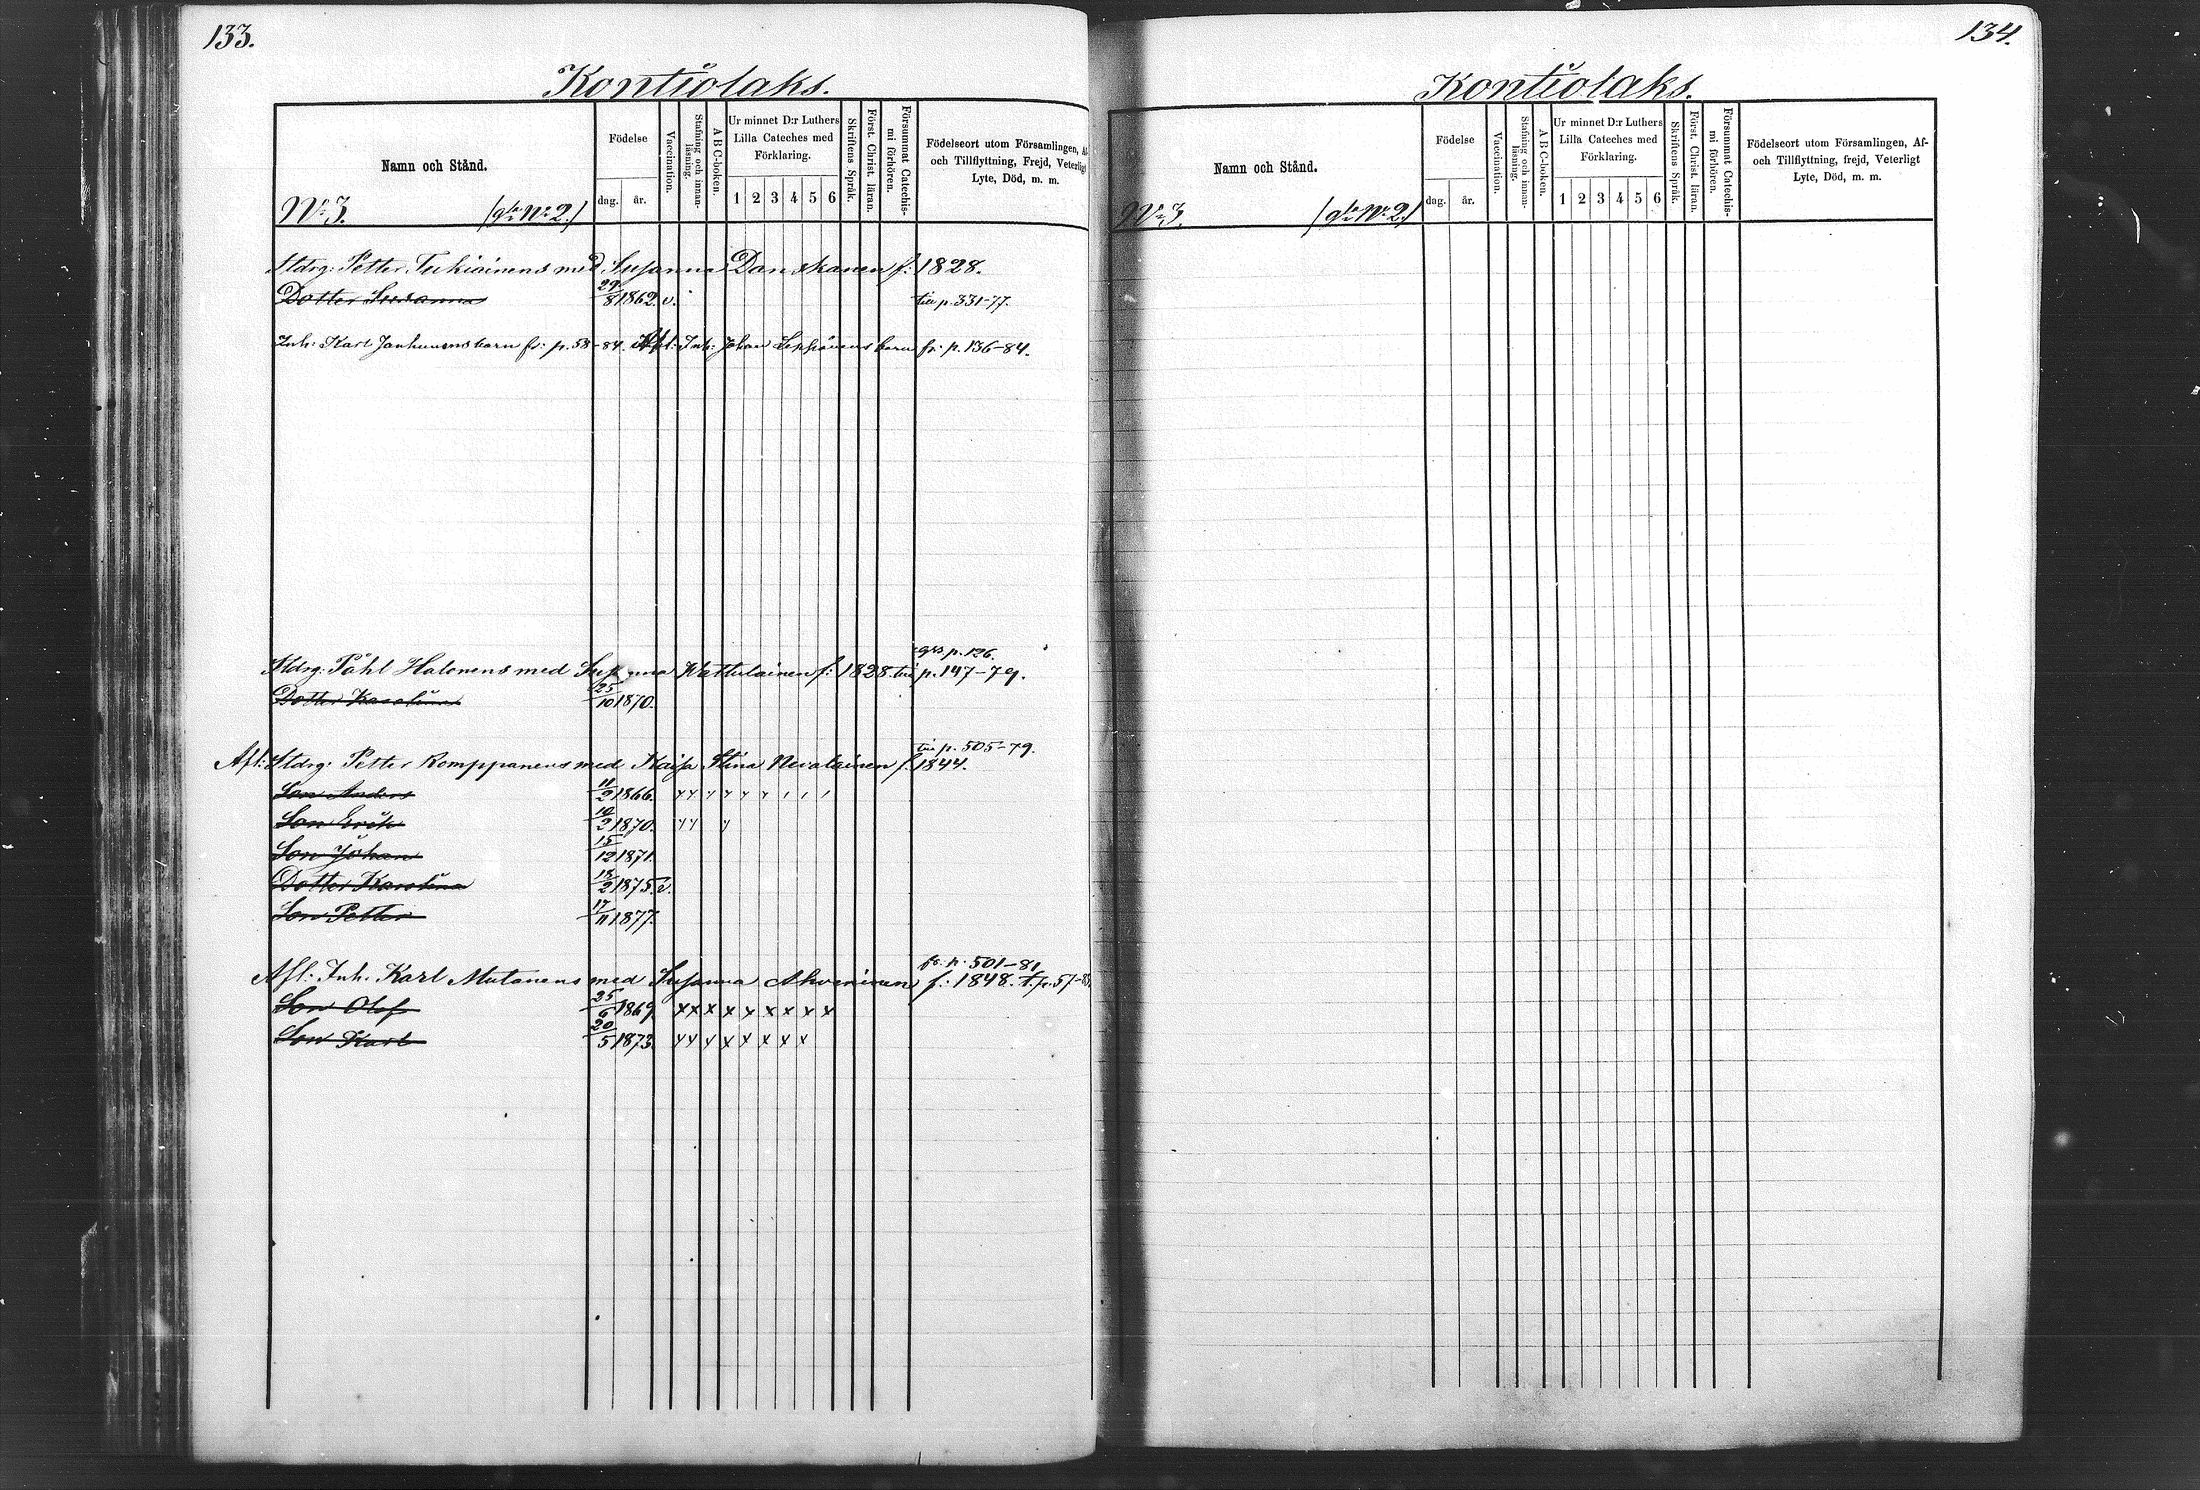 133.
Kontiolaks.
Namn och Stånd.
Födelse
dag. år.
Vaccination.
Stafning och innanläsning.
A B C-boken.
Ur minnet D:r Luthers Lilla Cateches med Förklaring.
1 2 3 4 5 6
Skriftens Språk.
Först. Christ. läran.
Försummat Catechismi förhören.
Födelseort utom Församlingen, Af-
och Tillflyttning, Frejd, Veterligt
Lyte, Död, m. m.
N:o 3. /gla N:o 2./
Stdrg: Petter Tukiainens med Susanna Danskanen f: 1828.
Dotter Susanna 29/8 1862. v. till p. 331-77.
Inh: Karl Janhunens barn fr: p. 58-84. Afl: Inh: Johan Seppänens barn fr: p. 136-84.
grs p. 126.
Stdrg: Påhl Halonens med Susanna Wattulainen f: 1828. till p. 147-79.
Dotter Karolina 25/10 1870.
till p. 505-79.
Afl: Stdrg: Petter Romppanens med Kaisa Stina Nevalainen f: 1844.
Son Anders 11/2 1866.
Son Erik 10/2 1870.
Son Johan 15/12 1871.
Dotter Karolina 18/2 1875. v.
Son Petter 17/11 1877.
fr. p. 501-81
Afl: Inh. Karl Mutanens med Susanna Ahveninen f: 1848. t. p. 57-
Son Olof 25/6 1869. x x x x x x x x x
Son Karl 20/5 1873.
134.
Kontiolaks.
Namn och Stånd.
Födelse
dag. år.
Vaccination.
Stafning och innanläsning.
A B C-boken.
Ur minnet D:r Luthers Lilla Cateches med Förklaring.
1 2 3 4 5 6
Skriftens Språk.
Först. Christ. läran.
Försummat Catechismi förhören.
Födelseort utom Församlingen, Af-
och Tillflyttning, frejd, Veterligt
Lyte, Död, m. m.
N:o 3. /gla N:o 2./